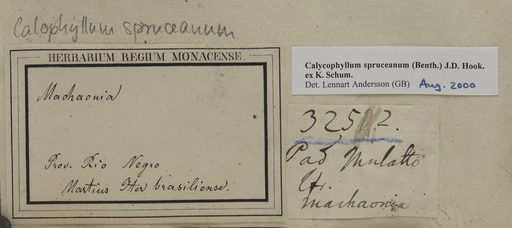 Calophyllum spruceanum
HERBARIUM REGIUM MONACENSE
Machaonia
Prov. Rio Negro
Martius Iter brasiliense.
Calycophyllum spruceanum (Benth.) J.D. Hook.
ex K. Schum.
Det. Lennart Andersson (GB) Aug. 2000
325 2.
Pao Mulatto
Machaonia